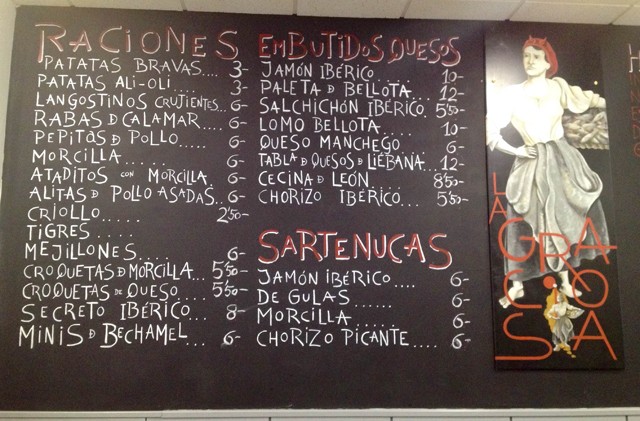 RACIONES
PATATAS BRAVAS.... 3-
PATATAS ALI-OLI.... 3-
LANGOSTINOS CRUJIENTES... 6-
RABAS D CALAMAR.... 6-
PEPITAS D POLLO..... 6-
MORCILLA...... 6-
ATADITOS CON MORCILLA 6-
ALITAS D POLLO ASADAS.. 6-
CRIOLLO..... 2'50-
TIGRES.....
MEJILLONES.... 6-
CROQUETAS D MORCILLA... 5'50-
CROQUETAS DE QUESO.... 5'50-
SECRETO IBÉRICO... 8-
MINIS D BECHAMEL... 6-
EMBUTIDOS QUESOS
JAMÓN IBÉRICO.... 10-
PALETA D BELLOTA... 12-
SALCHICHÓN IBÉRICO. 5'50-
LOMO BELLOTA.... 10-
QUESO MANCHEGO... 6-
TABLA D QUESOS D LIÉBANA... 12-
CECINA D LEÓN.... 8'50-
CHORIZO IBÉRICO... 5'50-
SARTENUCAS
JAMÓN IBÉRICO.... 6-
DE GULAS ...... 6-
MORCILLA...... 6-
CHORIZO PICANTE.... 6-
LA
GRA
CIO
SA